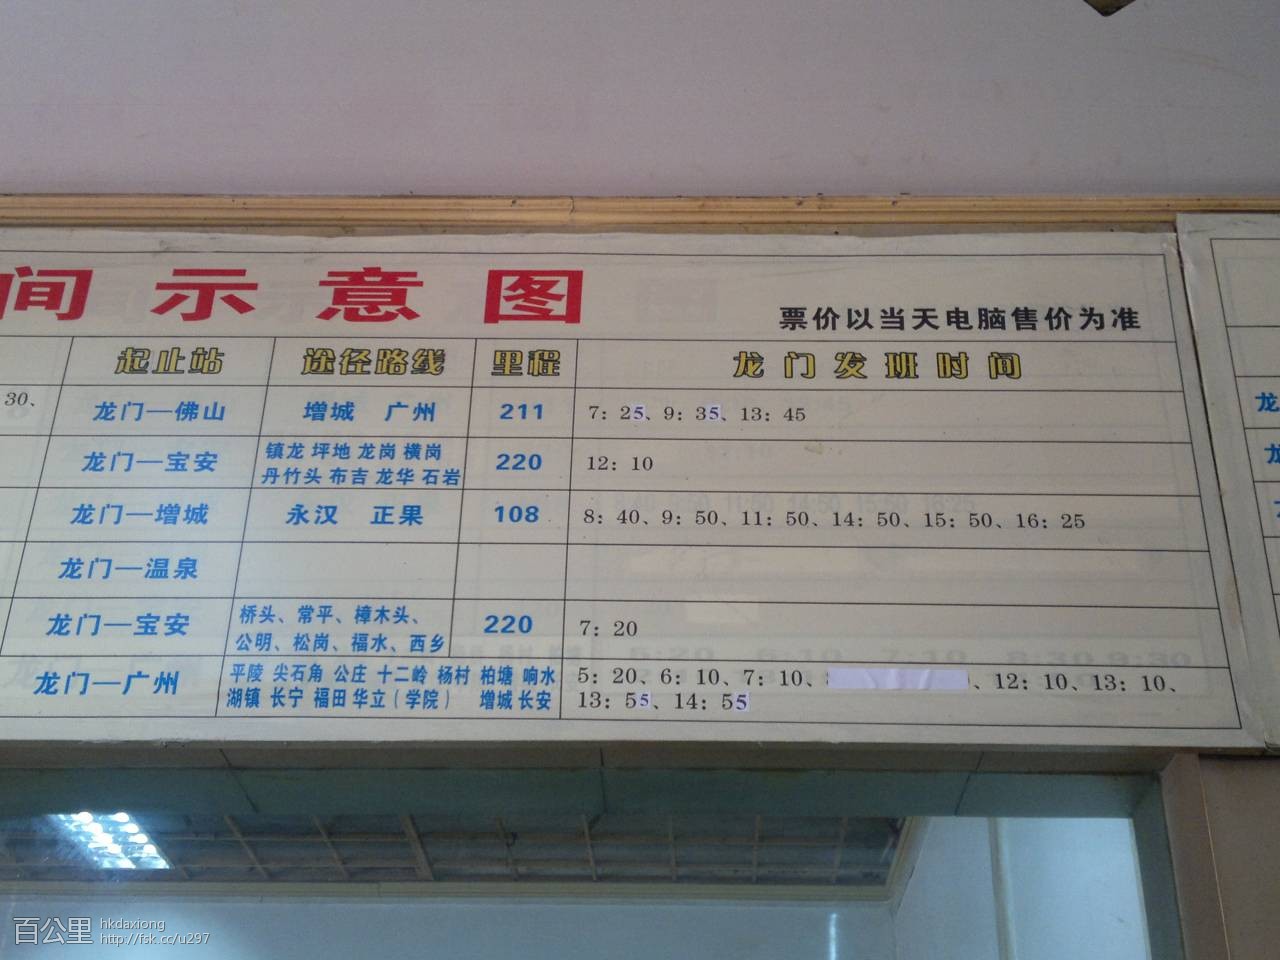 间示意图
票价以当天电脑售价为准
起止站 途径路线 里程 龙门发班时间
30、 龙门—佛山 增城 广州 211 7: 25、9: 35、13: 45
龙门—宝安 镇龙 坪地 龙岗 横岗
丹竹头 布吉 龙华 石岩 220 12: 10
龙门—增城 永汉 正果 108 8: 40、9: 50、11: 50、14: 50、15: 50、16: 25
龙门—温泉
龙门—宝安 桥头、常平、樟木头、
公明、松岗、福水、西乡 220 7: 20
龙门—广州 平陵 尖石角 公庄 十二岭 杨村 柏塘 响水
湖镇 长宁 福田 华立（学院） 增城 长安
5: 20、6: 10、7: 10、 、12: 10、13: 10、
13: 55、14: 55
百公里 hkdaxiong
http://fsk.cc/u297